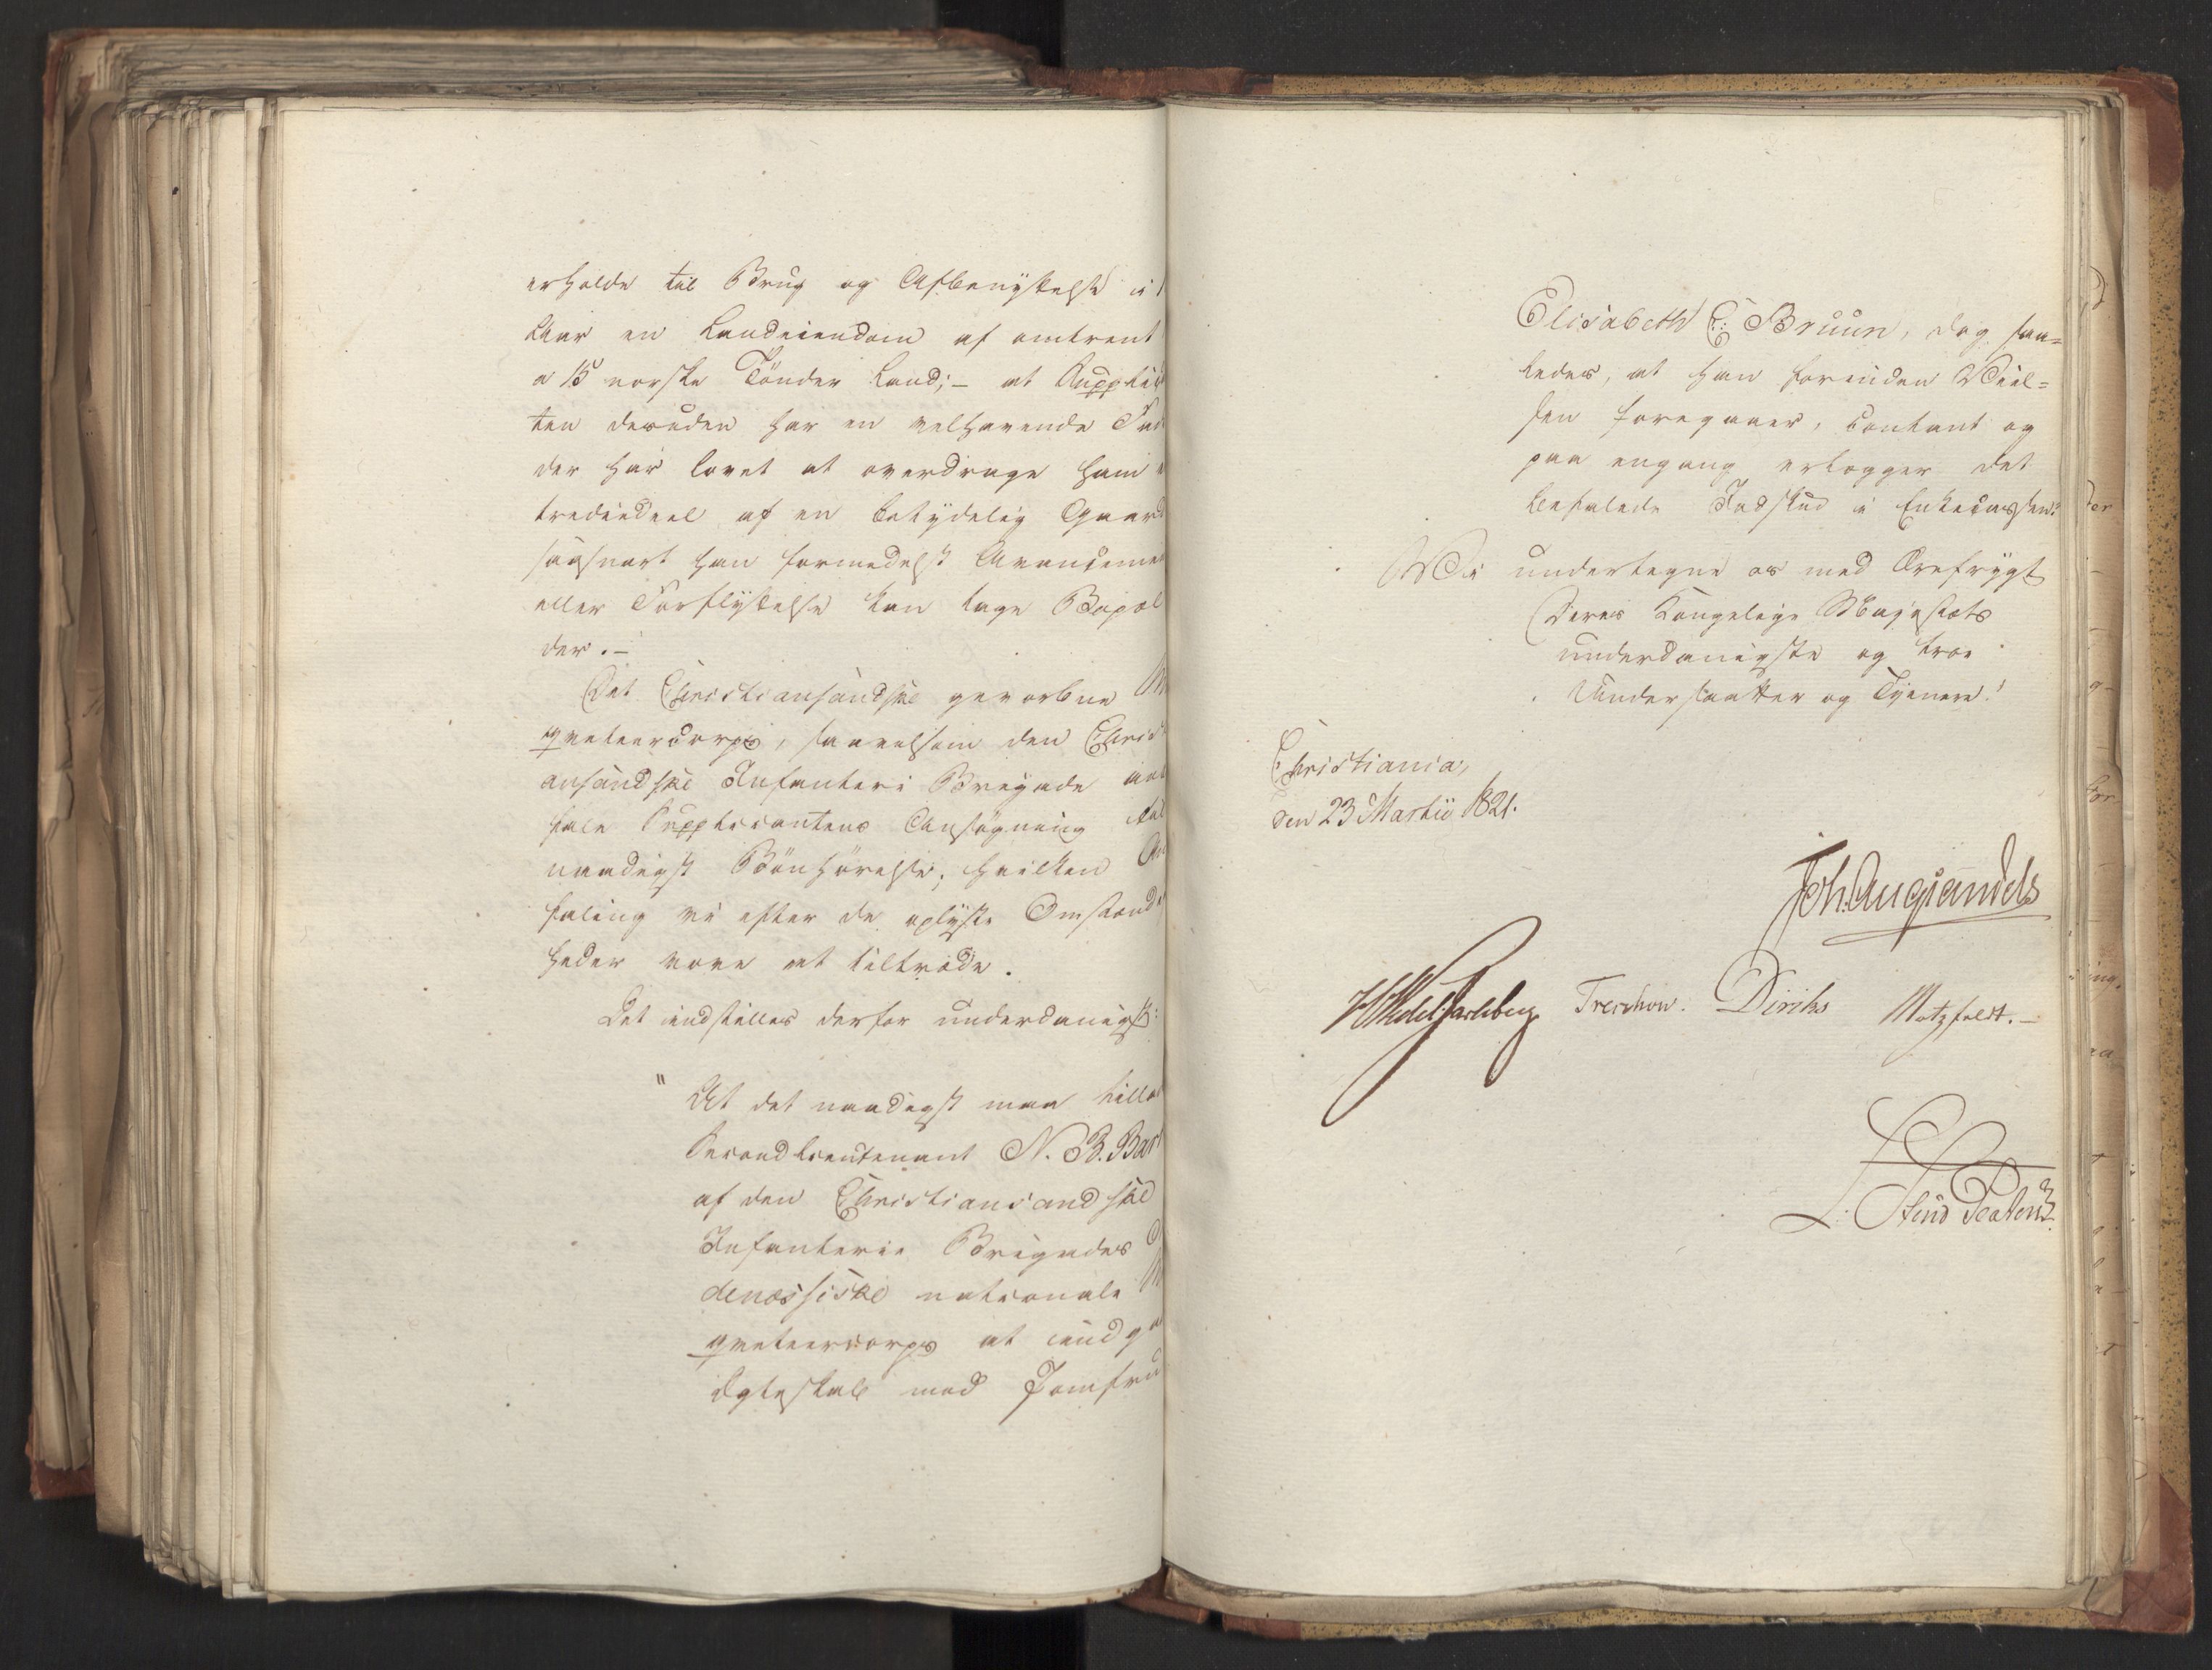 erholde til Brug og Afbenyttelse i
Aar en Landeiendom af omtrent
a 15 norske Tønder Land; - at Supplic
ten desuden har en velhavende Fad
der har lovet at overdrage ham
trediedeel af en betydelig Gaard
saasnart han formedelst Avanceme
eller Forflyttelse kan tage Bopæl
der. -
Det Christiansandske gevorbne M
qveteercorps, saavelsom den Christi
ansandske Infanteri Brigade anb
fale Supplicantens Ansøgning til
naadigst Bønhørelse; hvilken An
faling vi efter de oplyste Omstændig
heder vove at tiltræde.
Det indstilles derfor underdanigst:
" At det naadigst maa tilla
Secondlieutenant N. B. Bar
af den Christiansandske
Infanterie Brigades
denæssiske nationale M
qveteercorps at indga
Ægteskab med Jomfru
Elisabeth C: Bruun, dog saa=
ledes, at han forinden Viel=
sen foregaaer, contant og
paa engang erlægger det
befalede Indskud i Enkecassen."
Vi undertegne os med Ærefrygt
Deres Kongelige Majestæts
underdanigste og troe
Undersaatter og Tjenere!
Christiania,
den 23 Martii 1821.
Joh. Aug Sandels
HWedelJarlsberg Treschow. Diriks Motzfeldt. -
L: Stend Platou